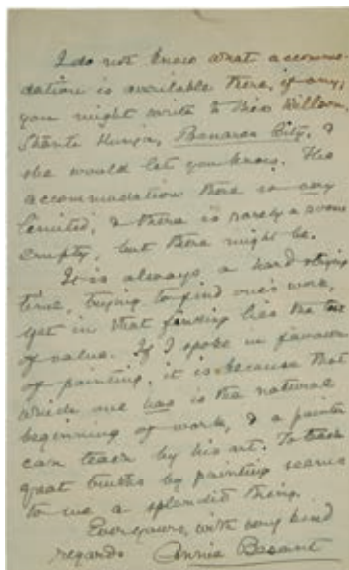 I do not know what accommo-
dation is available there, if any;
you might write to Miss Willson,
Shanti Kunja, Benares City, &
she would let you know. The
accommodation there is very
limited, & there is rarely a room
empty, but there might be.
It is always a hard trying
time, trying to find one's work,
yet in that finding lies the
of value. If I spoke in favour
of painting, it is because that
which one has is the natural
beginning of work, & a painter
can teach by his art. To teach
great truths by painting seems
to me a splendid thing.
Ever yours, with very kind
regards Annie Besant